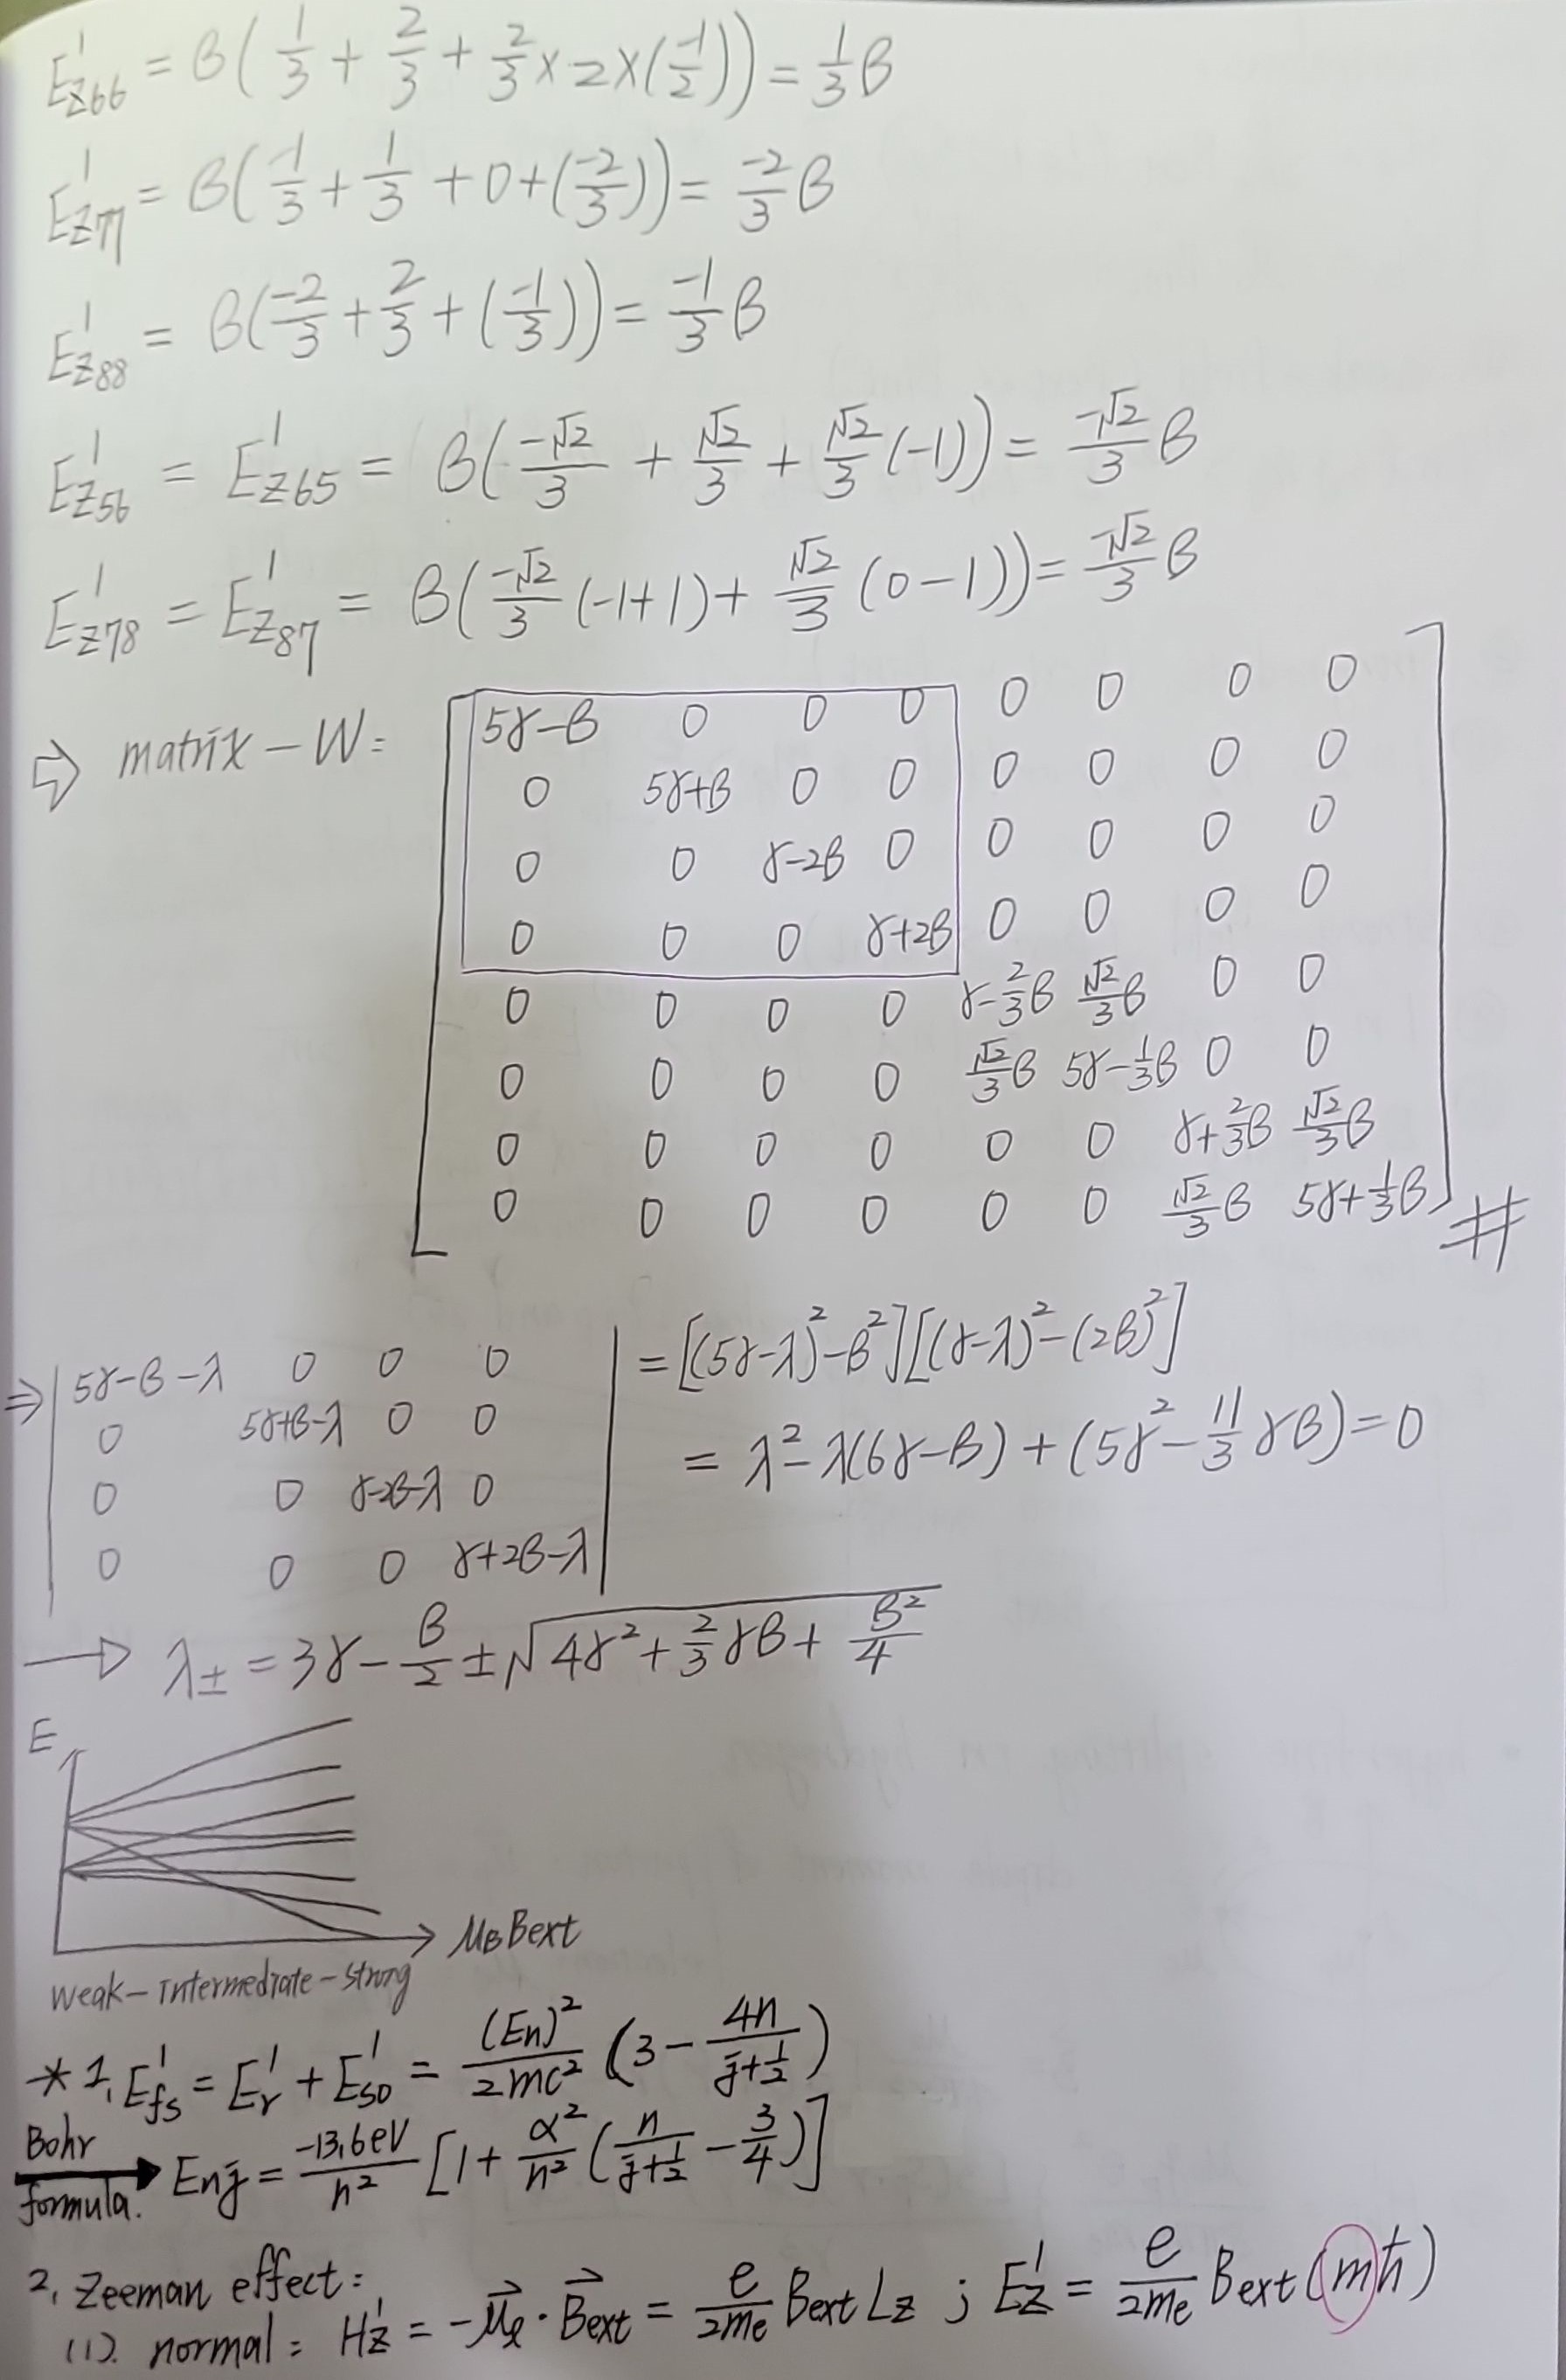 E¹z66 = β(1/3 + 2/3 + 2/3 × 2 × (-1/2)) = 1/3 β
E¹z77 = β(-1/3 + 1/3 + 0 + (-2/3)) = -2/3 β
E¹z88 = β(-2/3 + 2/3 + (-1/3)) = -1/3 β
E¹z56 = E¹z65 = β(-√2/3 + √2/3 + √2/3 (-1)) = -√2/3 β
E¹z78 = E¹z87 = β(-√2/3 (-1+1) + √2/3 (0-1)) = -√2/3 β
⇒ matrix - W =
5γ-β 0 0 0 0 0 0 0
0 5γ+β 0 0 0 0 0 0
0 0 γ-2β 0 0 0 0 0
0 0 0 γ+2β 0 0 0 0
0 0 0 0 γ-2/3β √2/3β 0 0
0 0 0 0 √2/3β 5γ-1/3β 0 0
0 0 0 0 0 0 γ+2/3β √2/3β
0 0 0 0 0 0 √2/3β 5γ+1/3β #
⇒ | 5γ-β-λ 0 0 0 | = [(5γ-λ)²-β²][(γ-λ)²-(2β)²]
0 5γ+β-λ 0 0
0 0 γ-2β-λ 0 = λ²-λ(6γ-β)+(5γ²-11/3 γβ)=0
0 0 0 γ+2β-λ
→ λ± = 3γ - β/2 ± √(4γ² + 2/3 γβ + β²/4)
E
μB Bext
weak-intermediate-strong
* 1. E¹fs = E¹r + E¹so = (En)²/2mc² (3 - 4n/(j+1/2))
Bohr formula. → Enj = -13.6eV/n² [1 + α²/n² (n/(j+1/2) - 3/4)]
2. Zeeman effect:
(1). normal: H'z = -μ⃗ℓ · B⃗ext = e/2me Bext Lz ; E¹z = e/2me Bext (mħ)